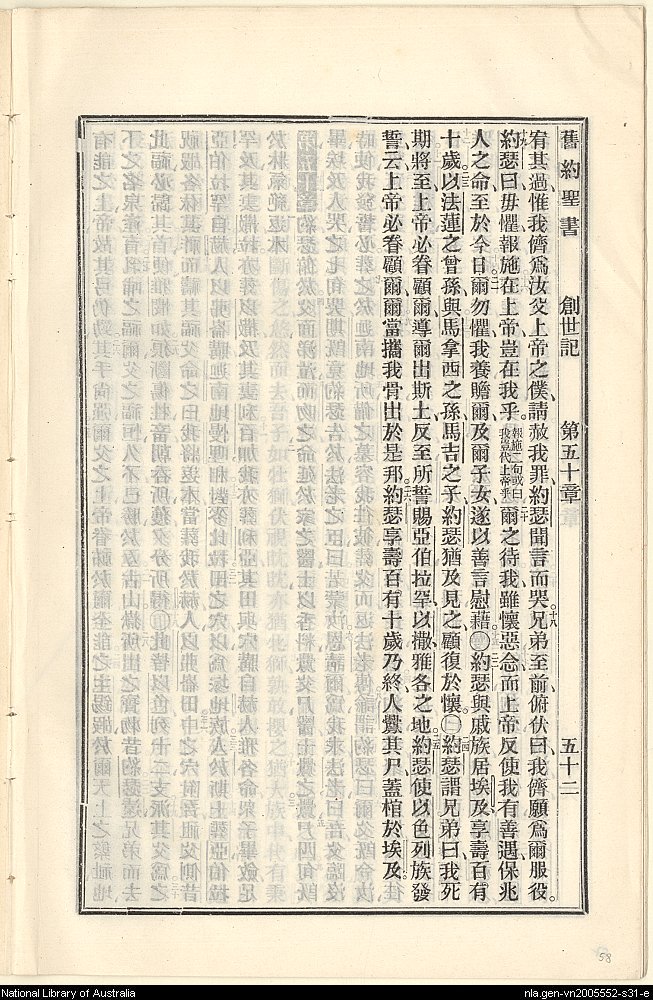 舊約聖書 創世記 第五十章 五十二
宥其過惟我儕爲汝父上帝之僕請赦我罪約瑟聞言而哭十八兄弟至前俯伏曰我儕願爲爾服役十九
約瑟曰毋懼報施在上帝豈在我乎報施二句或曰我豈代上帝乎二十爾之待我雖懷惡念而上帝反使我有善遇保兆
人之命至於今日二一爾勿懼我養贍爾及爾子女遂以善言慰藉○二二約瑟與戚族居埃及享壽百有
十歲二三以法蓮之曾孫與馬拿西之孫馬吉之子約瑟猶及見之顧復於懷○二四約瑟謂兄弟曰我死
期將至上帝必眷顧爾導爾出斯土反至所誓賜亞伯拉罕以撒雅各之地二五約瑟使以色列族發
誓云上帝必眷顧爾爾當攜我骨出於是邦二六約瑟享壽百有十歲乃終人釁其尸蓋棺於埃及
58
National Library of Australia
nla.gen-vn2005552-s31-e